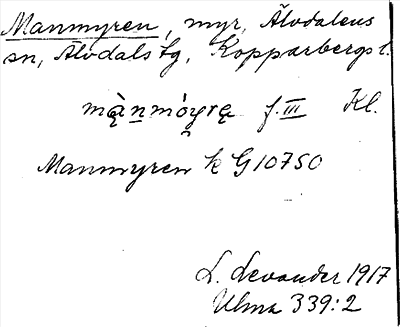 Manmyren, myr, Älvdalens
sn, Älvdals tg, Kopparbergs l.
f. III Kl.
Manmyren k G10750
L. Levander 1917
Ulma 339:2